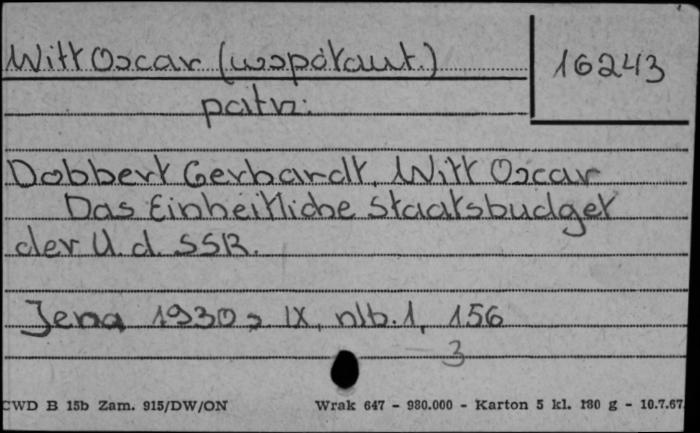 Witt Oscar (współaut.)
16243
patrz:
Dobbert Gerhardt, Witt Oscar
Das Einheitliche Staatsbudget
der U.d. SSR.
Jena 1930, IX, nlb. 1, 156
3
CWD B 15b Zam. 915/DW/ON Wrak 647 - 980.000 - Karton 5 kl. 180 g - 10.7.67